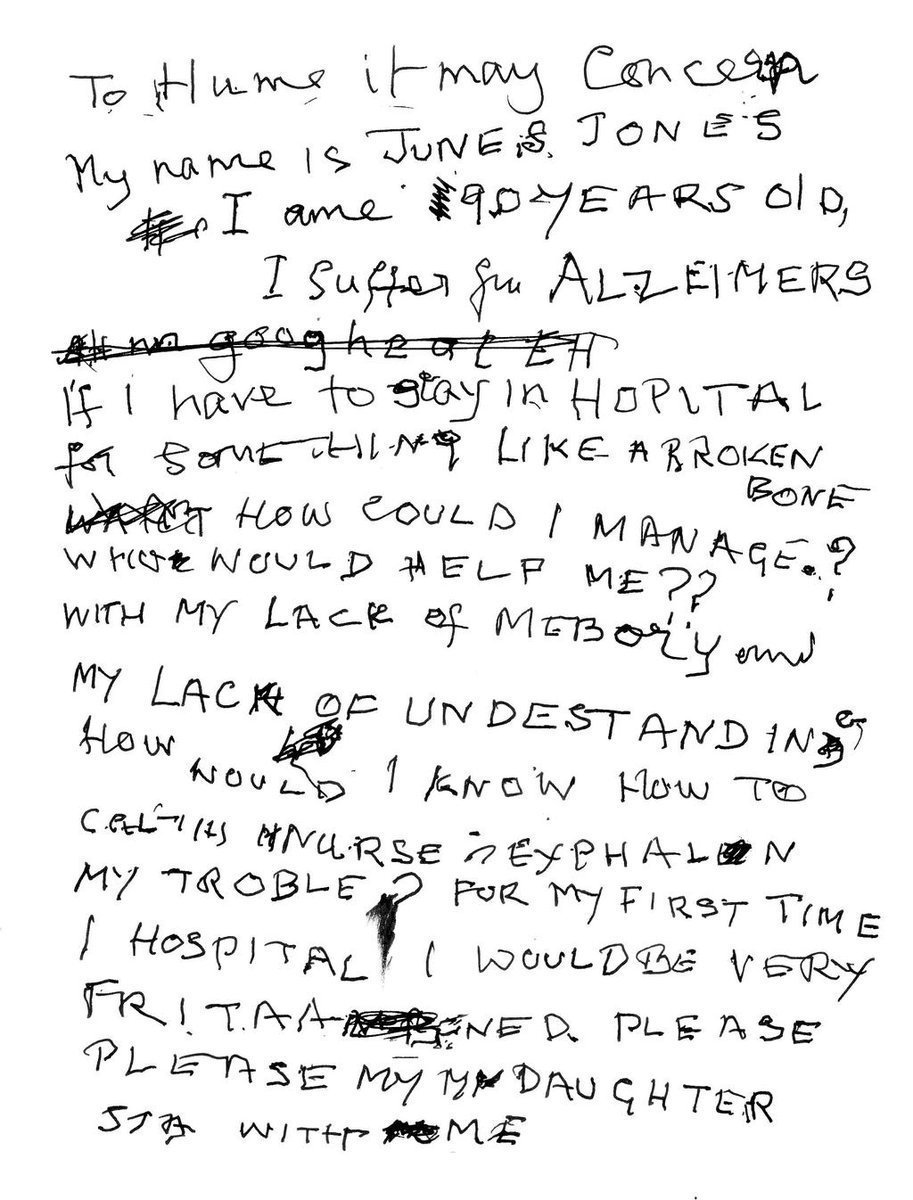 To Hume it may Concern
My name is JUNE S. JONES
I ame 90 YEARS Old,
I Suffer ALZEIMERS
no goog heatEH
If I have to stay in HOPITAL
for SOMETHING LIKE A BROKEN
BONE
HOW COULD I MANAGE.?
WOULD HELP ME??
WITH MY LACK of MEBORY and
MY LACK OF UNDESTANDING
HOW
WOULD I KNOW HOW TO
NURSE EXPHALN
MY TROBLE? FOR MY FIRST TIME
I HOSPITAL I WOULD BE VERY
FRITAANED. PLEASE
PLEASE MY DAUGHTER
STA WITH ME